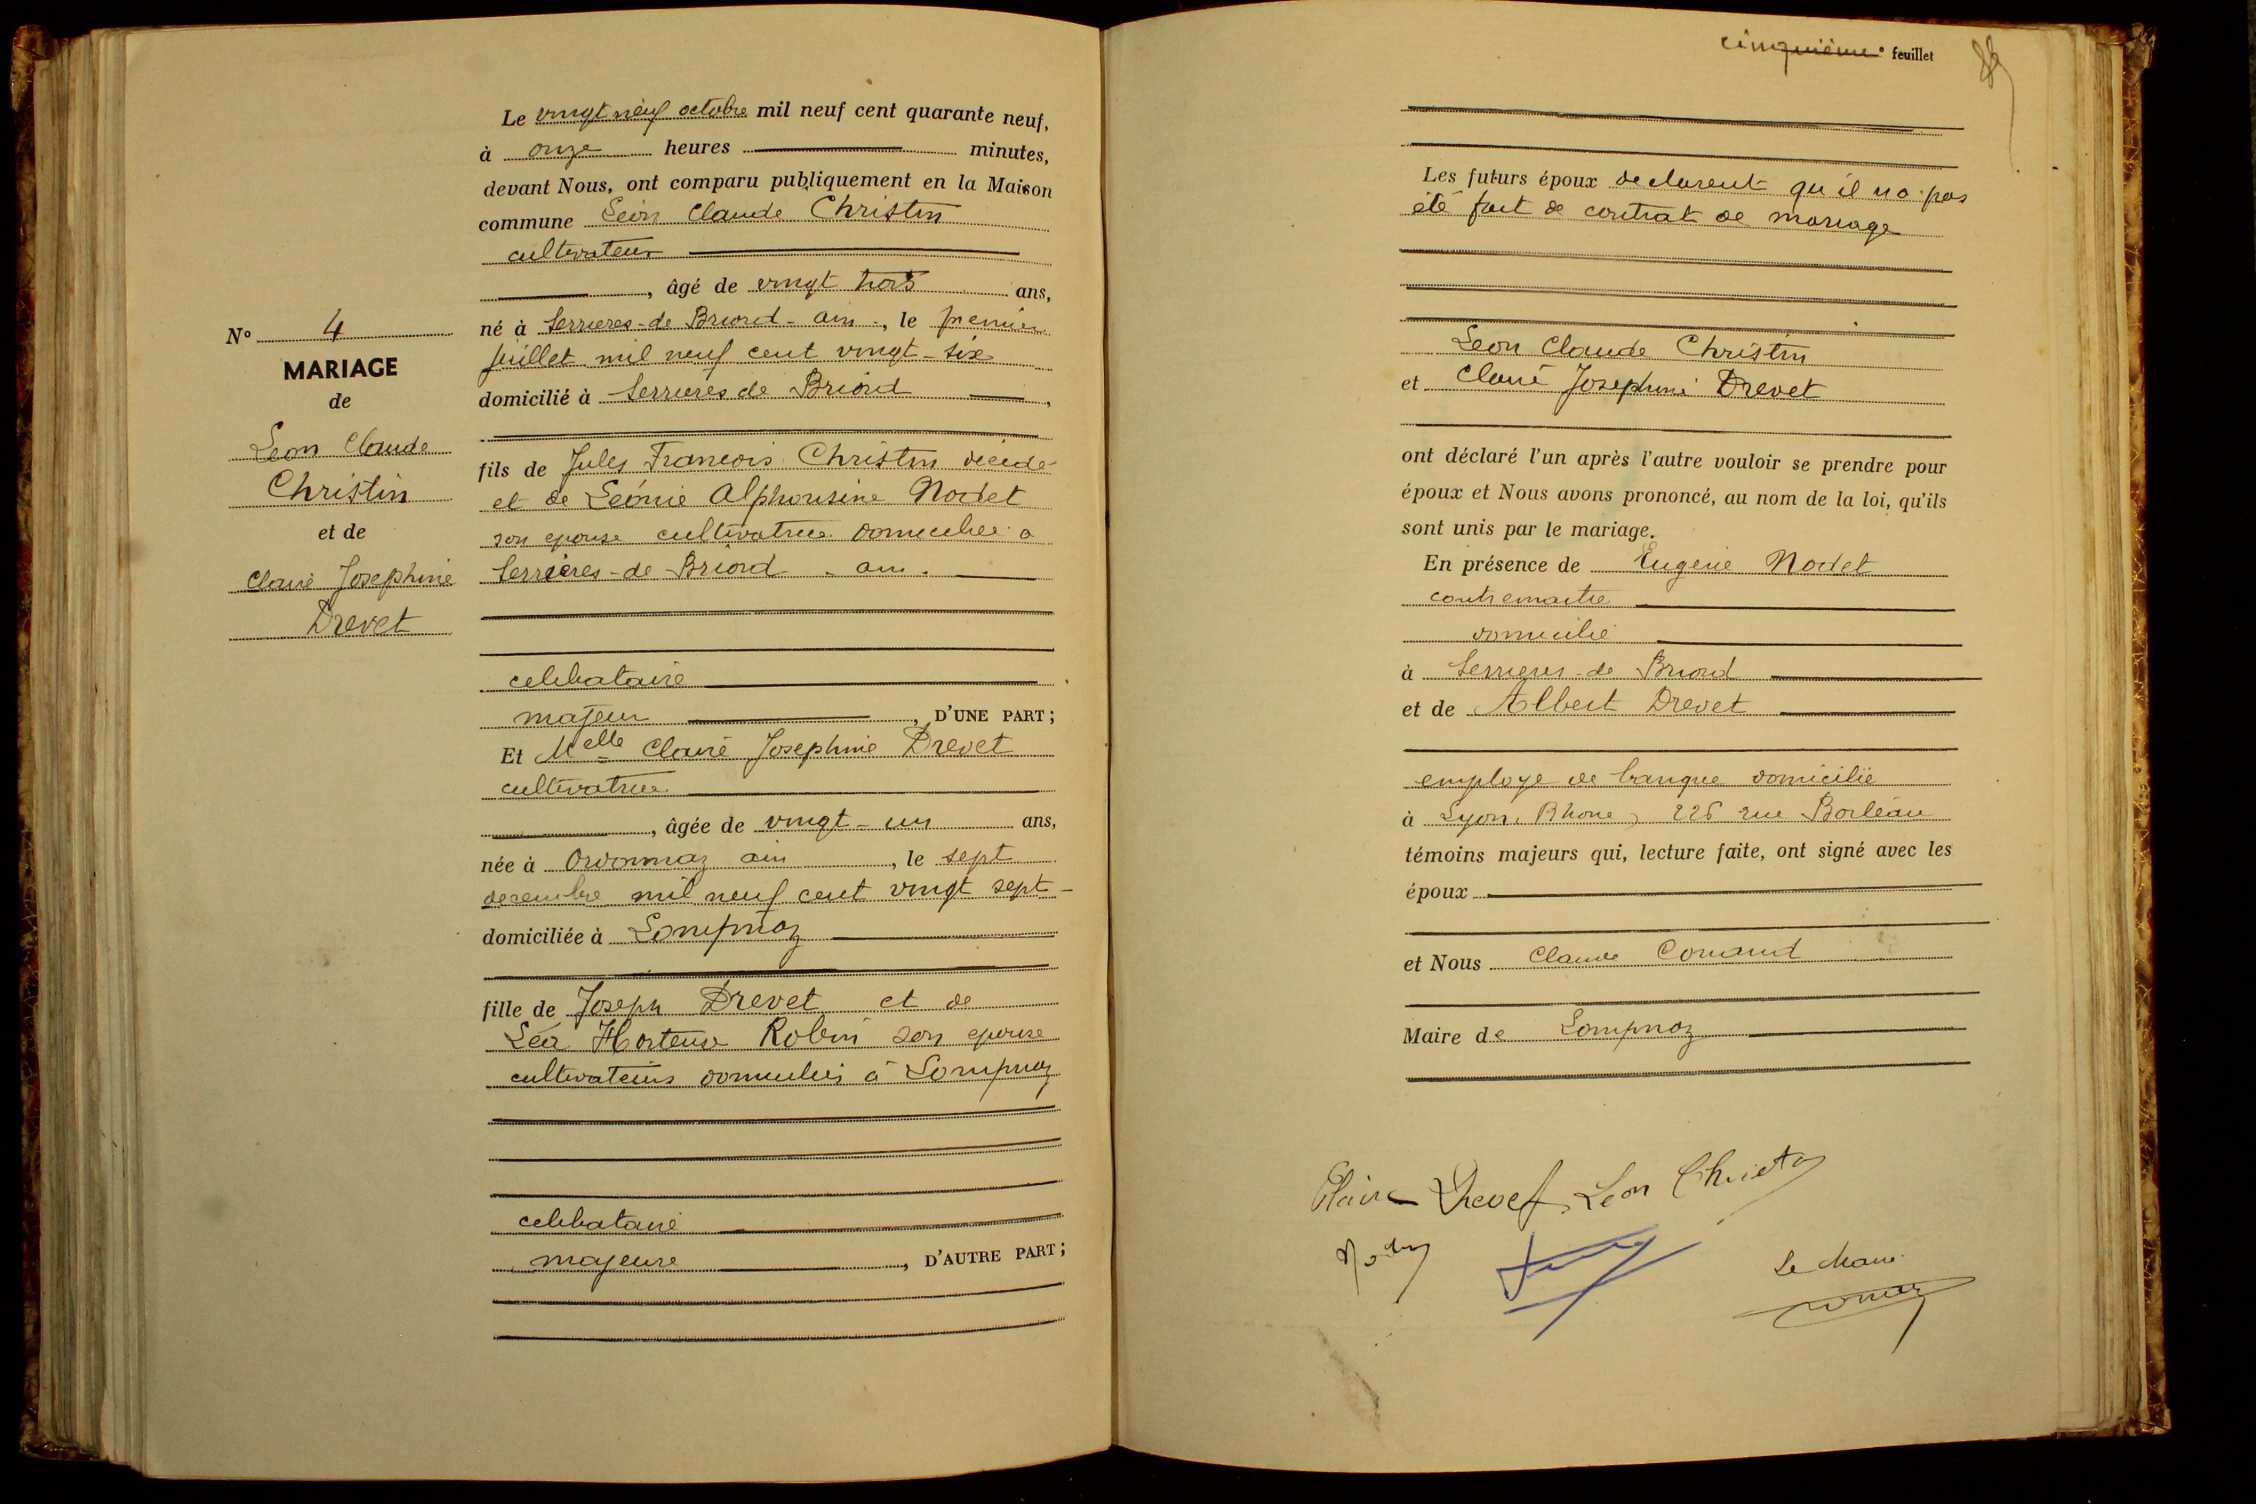 Le vingt neuf octobre mil neuf cent quarante neuf,
à onze heures minutes,
devant Nous, ont comparu publiquement en la Maison
commune Léon Claude Christin
cultivateur
, âgé de vingt trois ans,
né à Serrieres-de Briord - ain -, le premier
juillet mil neuf cent vingt-six
domicilié à Serrieres de Briord ,
fils de Jules Francois Christin décédé
et de Léonie Alphonsine Nodet
son epouse cultivatrice domiciliée a
Serrières-de Briord - ain -
celibataire
majeur , D'UNE PART ;
Et Melle Claire Josephine Drevet
cultivatrice
, âgée de vingt-un ans,
née à Ordonnaz ain , le sept
decembre mil neuf cent vingt sept -
domiciliée à Lompnaz
fille de Joseph Drevet et de
Léa Hortense Robin son epouse
cultivateurs domiciliés à Lompnaz
celibataire
majeure , D'AUTRE PART ;
N° 4
MARIAGE
de
Leon Claude
Christin
et de
Claire Josephine
Drevet
cinquième e feuillet
Les futurs époux declarent qu'il n'a pas
été fait de contrat de mariage
Leon Claude Christin
et Claire Josephine Drevet
ont déclaré l'un après l'autre vouloir se prendre pour
époux et Nous avons prononcé, au nom de la loi, qu'ils
sont unis par le mariage.
En présence de Eugene Nodet
contremaitre
domicilié
à Serrieres-de Briord
et de Albert Drevet
employe de banque domicilié
à Lyon (Rhone) 226 rue Boileau
témoins majeurs qui, lecture faite, ont signé avec les
époux
et Nous Claude Conand
Maire de Lompnaz
Claire Drevet Leon Christin
Nodet
Le Maire
Conand